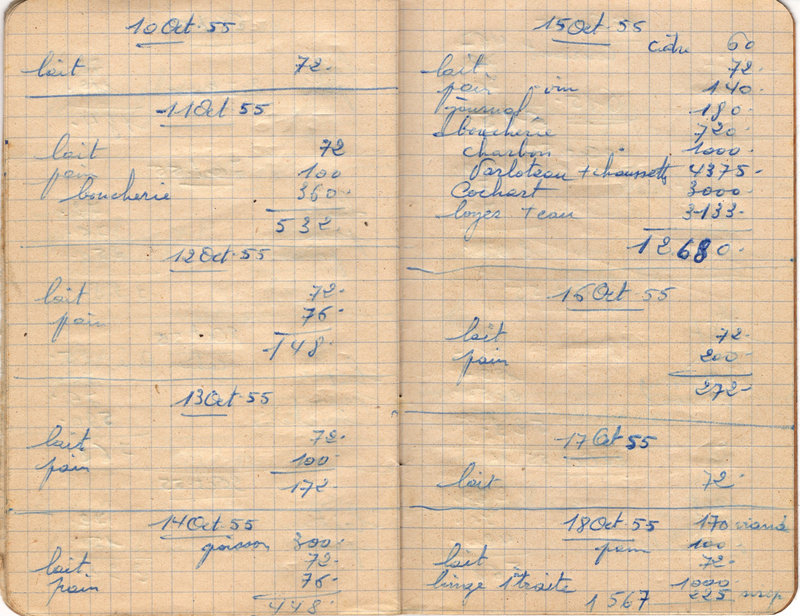 10 Oct. 55
lait 72.
11 Oct. 55
lait 72
pain 100
boucherie 360.
532.
12 Oct. 55
lait 72.
pain 76.
148.
13 Oct. 55
lait 72.
pain 100
172.
14 Oct. 55
poisson 300.
lait 72.
pain 76.
448.
15 Oct. 55
cidre 60
lait 72.
pain vin 140.
journal 180.
boucherie 720.
charbon 1000.
+ chaussett 4375.
Cochart 3000.
loyer + eau 3133.
12680.
16 Oct. 55
lait 72.
pain 200.
272.
17 Oct 55
lait 72.
18 Oct. 55 170 viand
pain 100.
lait 72.
linge 1e traite 1000
1567 225